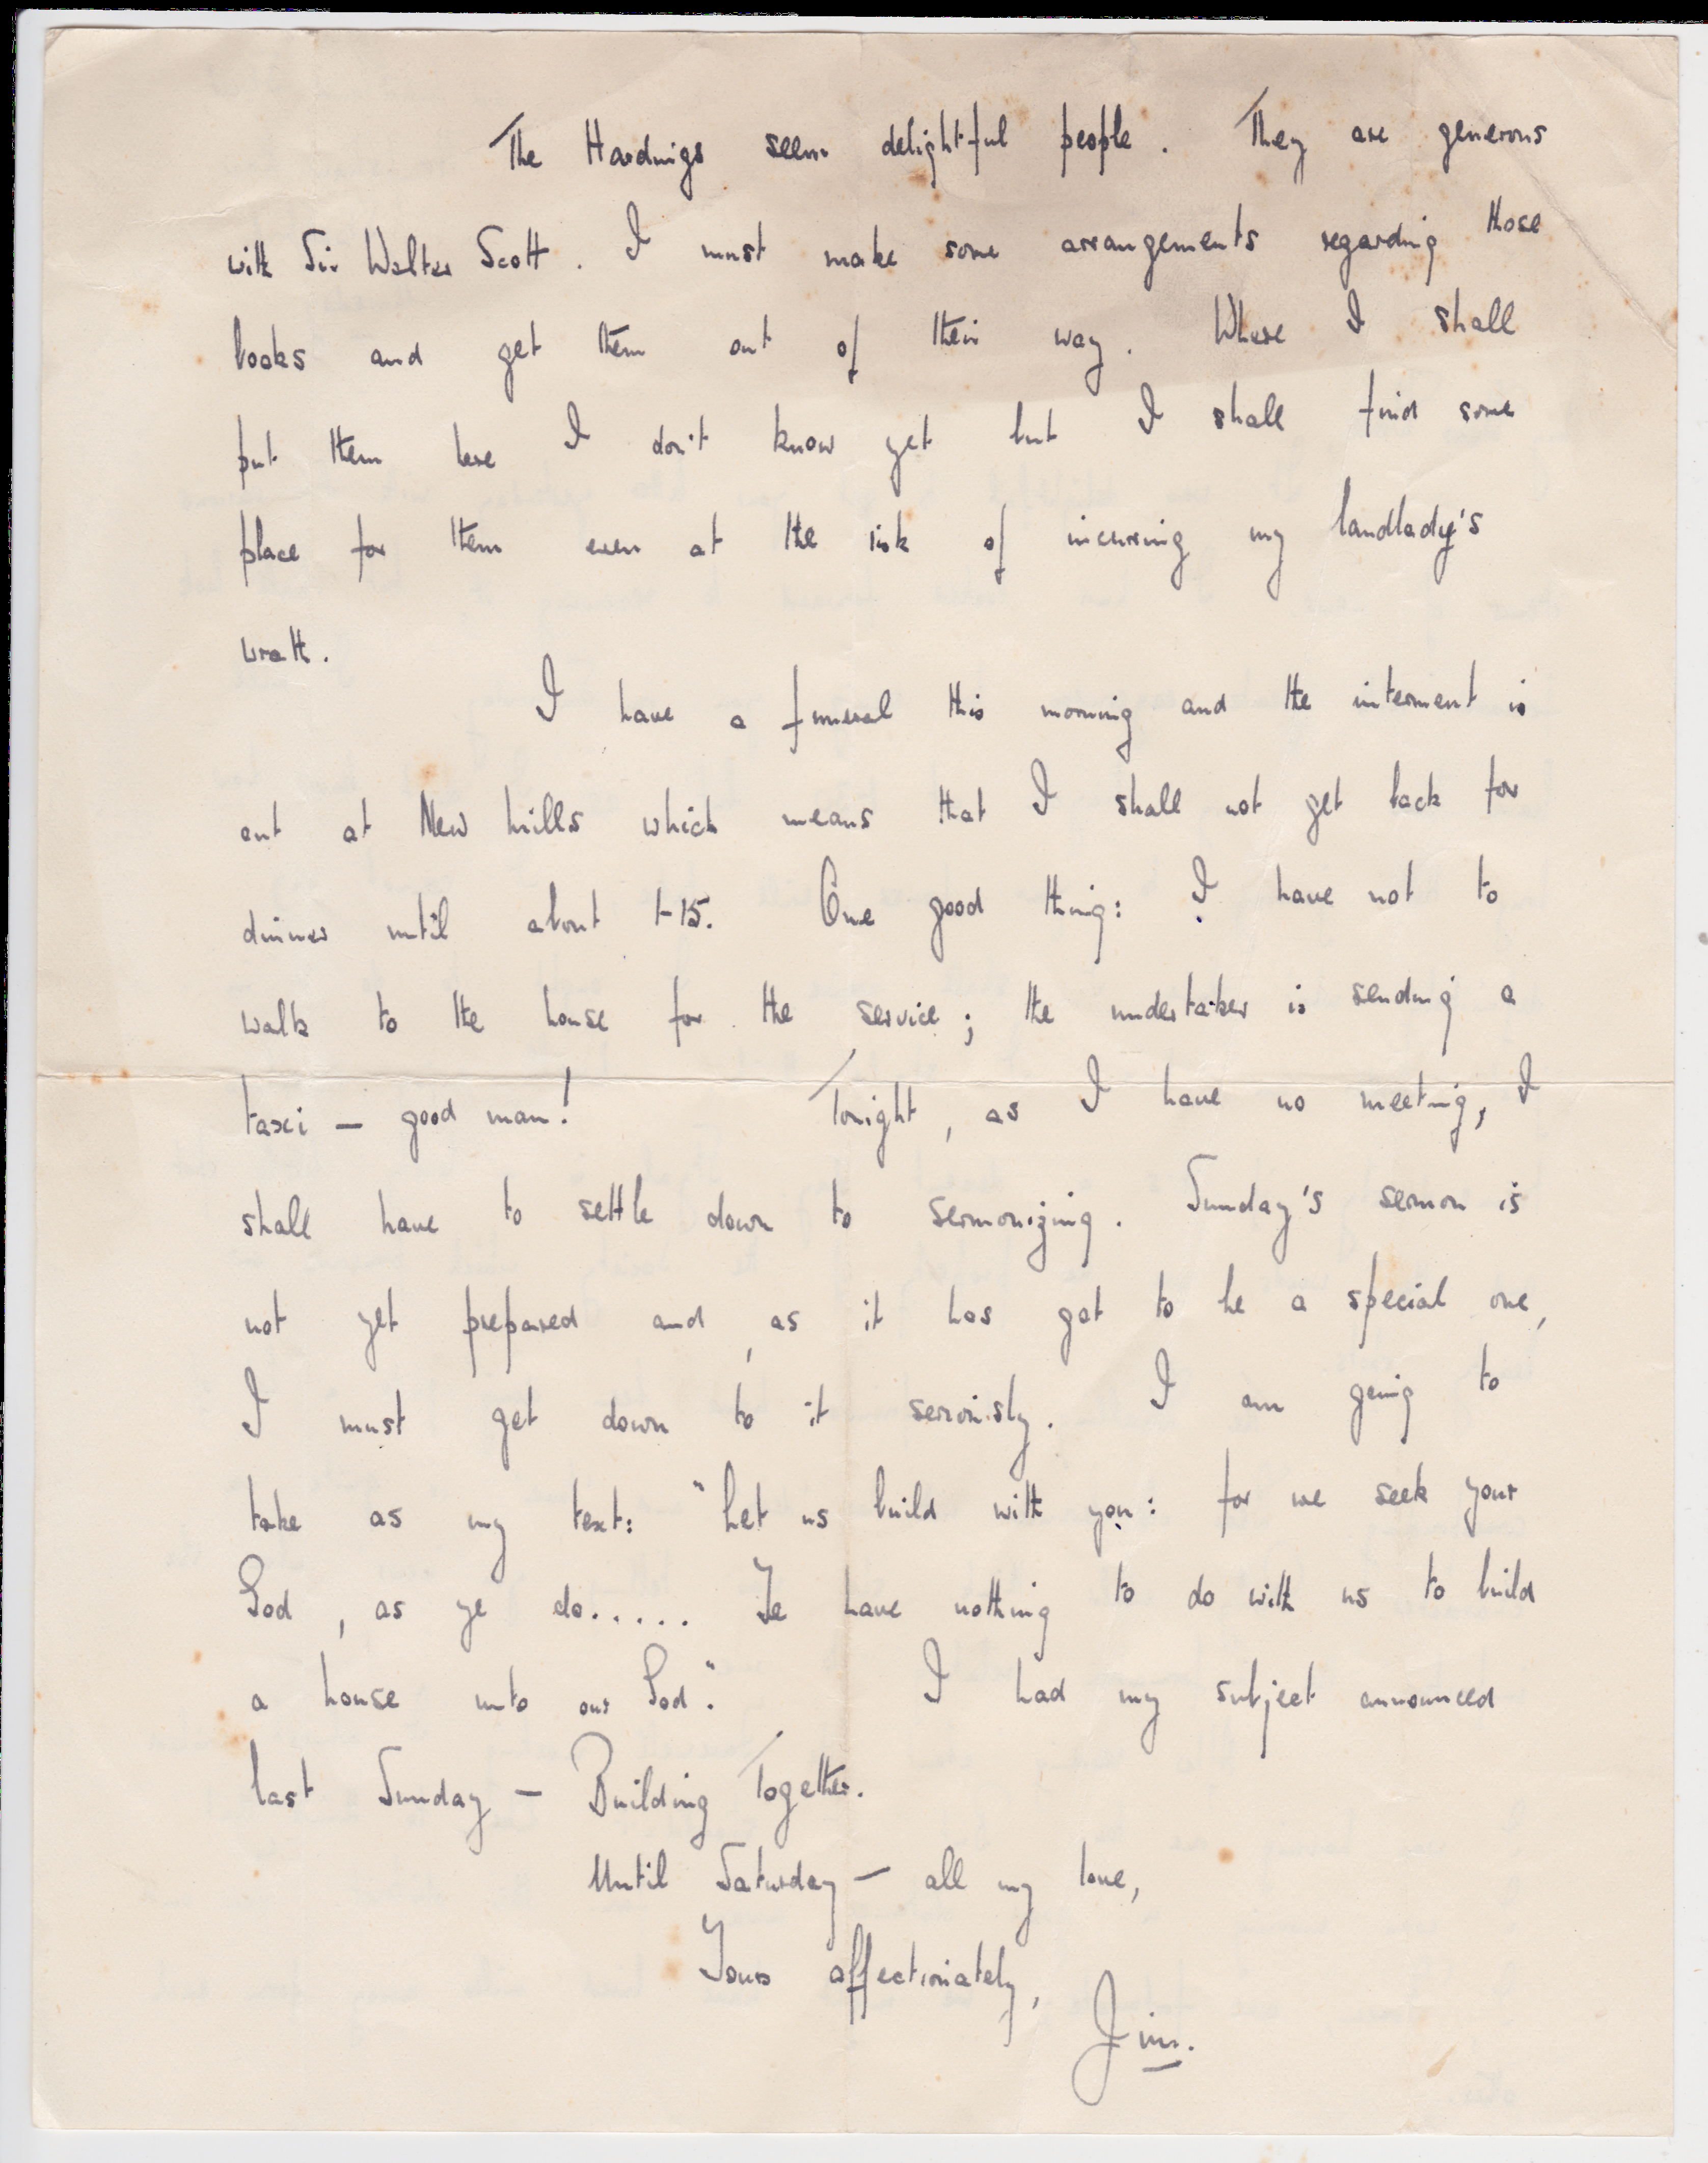 The Hardings seem delightful people. They are generous
with Sir Walter Scott. I must make some arrangements regarding those
books and get them out of their way. Where I shall
put them here I don't know yet but I shall find some
place for them even at the risk of incurring my landlady's
wrath.
I have a funeral this morning and the interment is
out at New Mills which means that I shall not get back for
dinner until about 1-15. One good thing: I have not to
walk to the house for the service; the undertaker is sending a
taxi — good man! Tonight, as I have no meeting, I
shall have to settle down to sermonizing. Sunday's sermon is
not yet prepared and, as it has got to be a special one,
I must get down to it seriously. I am going to
take as my text: "Let us build with you: for we seek your
God, as ye do..... Ye have nothing to do with us to build
a house unto our God." I had my subject announced
last Sunday — Building Together.
Until Saturday — all my love,
Yours affectionately,
Jim.